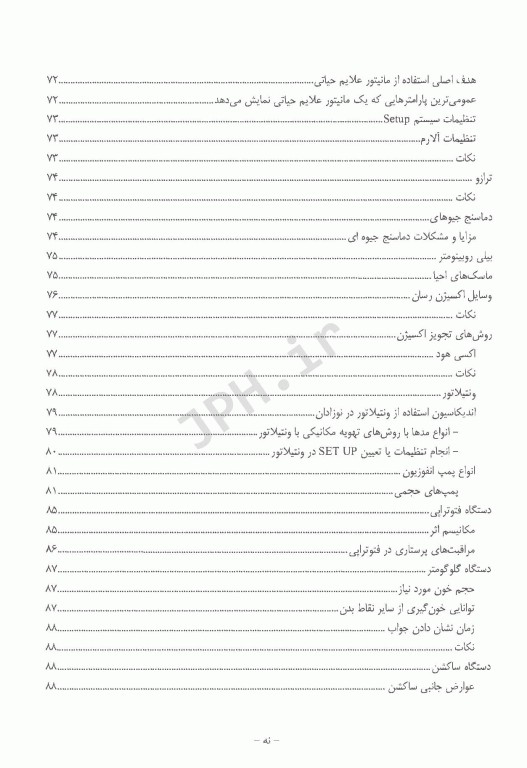 هدف اصلی استفاده از مانیتور علایم حیاتی................۷۲
عمومی‌ترین پارامترهایی که یک مانیتور علایم حیاتی نمایش می‌دهد................۷۲
تنظیمات سیستم Setup................۷۳
تنظیمات آلارم................۷۳
نکات................۷۳
ترازو................۷۴
نکات................۷۴
دماسنج جیوهای................۷۴
مزایا و مشکلات دماسنج جیوه ای................۷۴
بیلی روبینومتر................۷۵
ماسک‌های احیا................۷۵
وسایل اکسیژن رسان................۷۶
نکات................۷۷
روش‌های تجویز اکسیژن................۷۷
اکسی هود................۷۷
نکات................۷۸
ونتیلاتور................۷۸
اندیکاسیون استفاده از ونتیلاتور در نوزادان................۷۹
– انواع مدها با روش‌های تهویه مکانیکی با ونتیلاتور................۷۹
– انجام تنظیمات یا تعیین SET UP در ونتیلاتور................۸۰
انواع پمپ انفوزیون................۸۱
پمپ‌های حجمی................۸۱
دستگاه فتوتراپی................۸۵
مکانیسم اثر................۸۵
مراقبت‌های پرستاری در فتوتراپی................۸۶
دستگاه گلوگومتر................۸۷
حجم خون مورد نیاز................۸۷
توانایی خون‌گیری از سایر نقاط بدن................۸۷
زمان نشان دادن جواب................۸۸
نکات................۸۸
دستگاه ساکشن................۸۸
عوارض جانبی ساکشن................۸۸
– نه –
JPH.ir